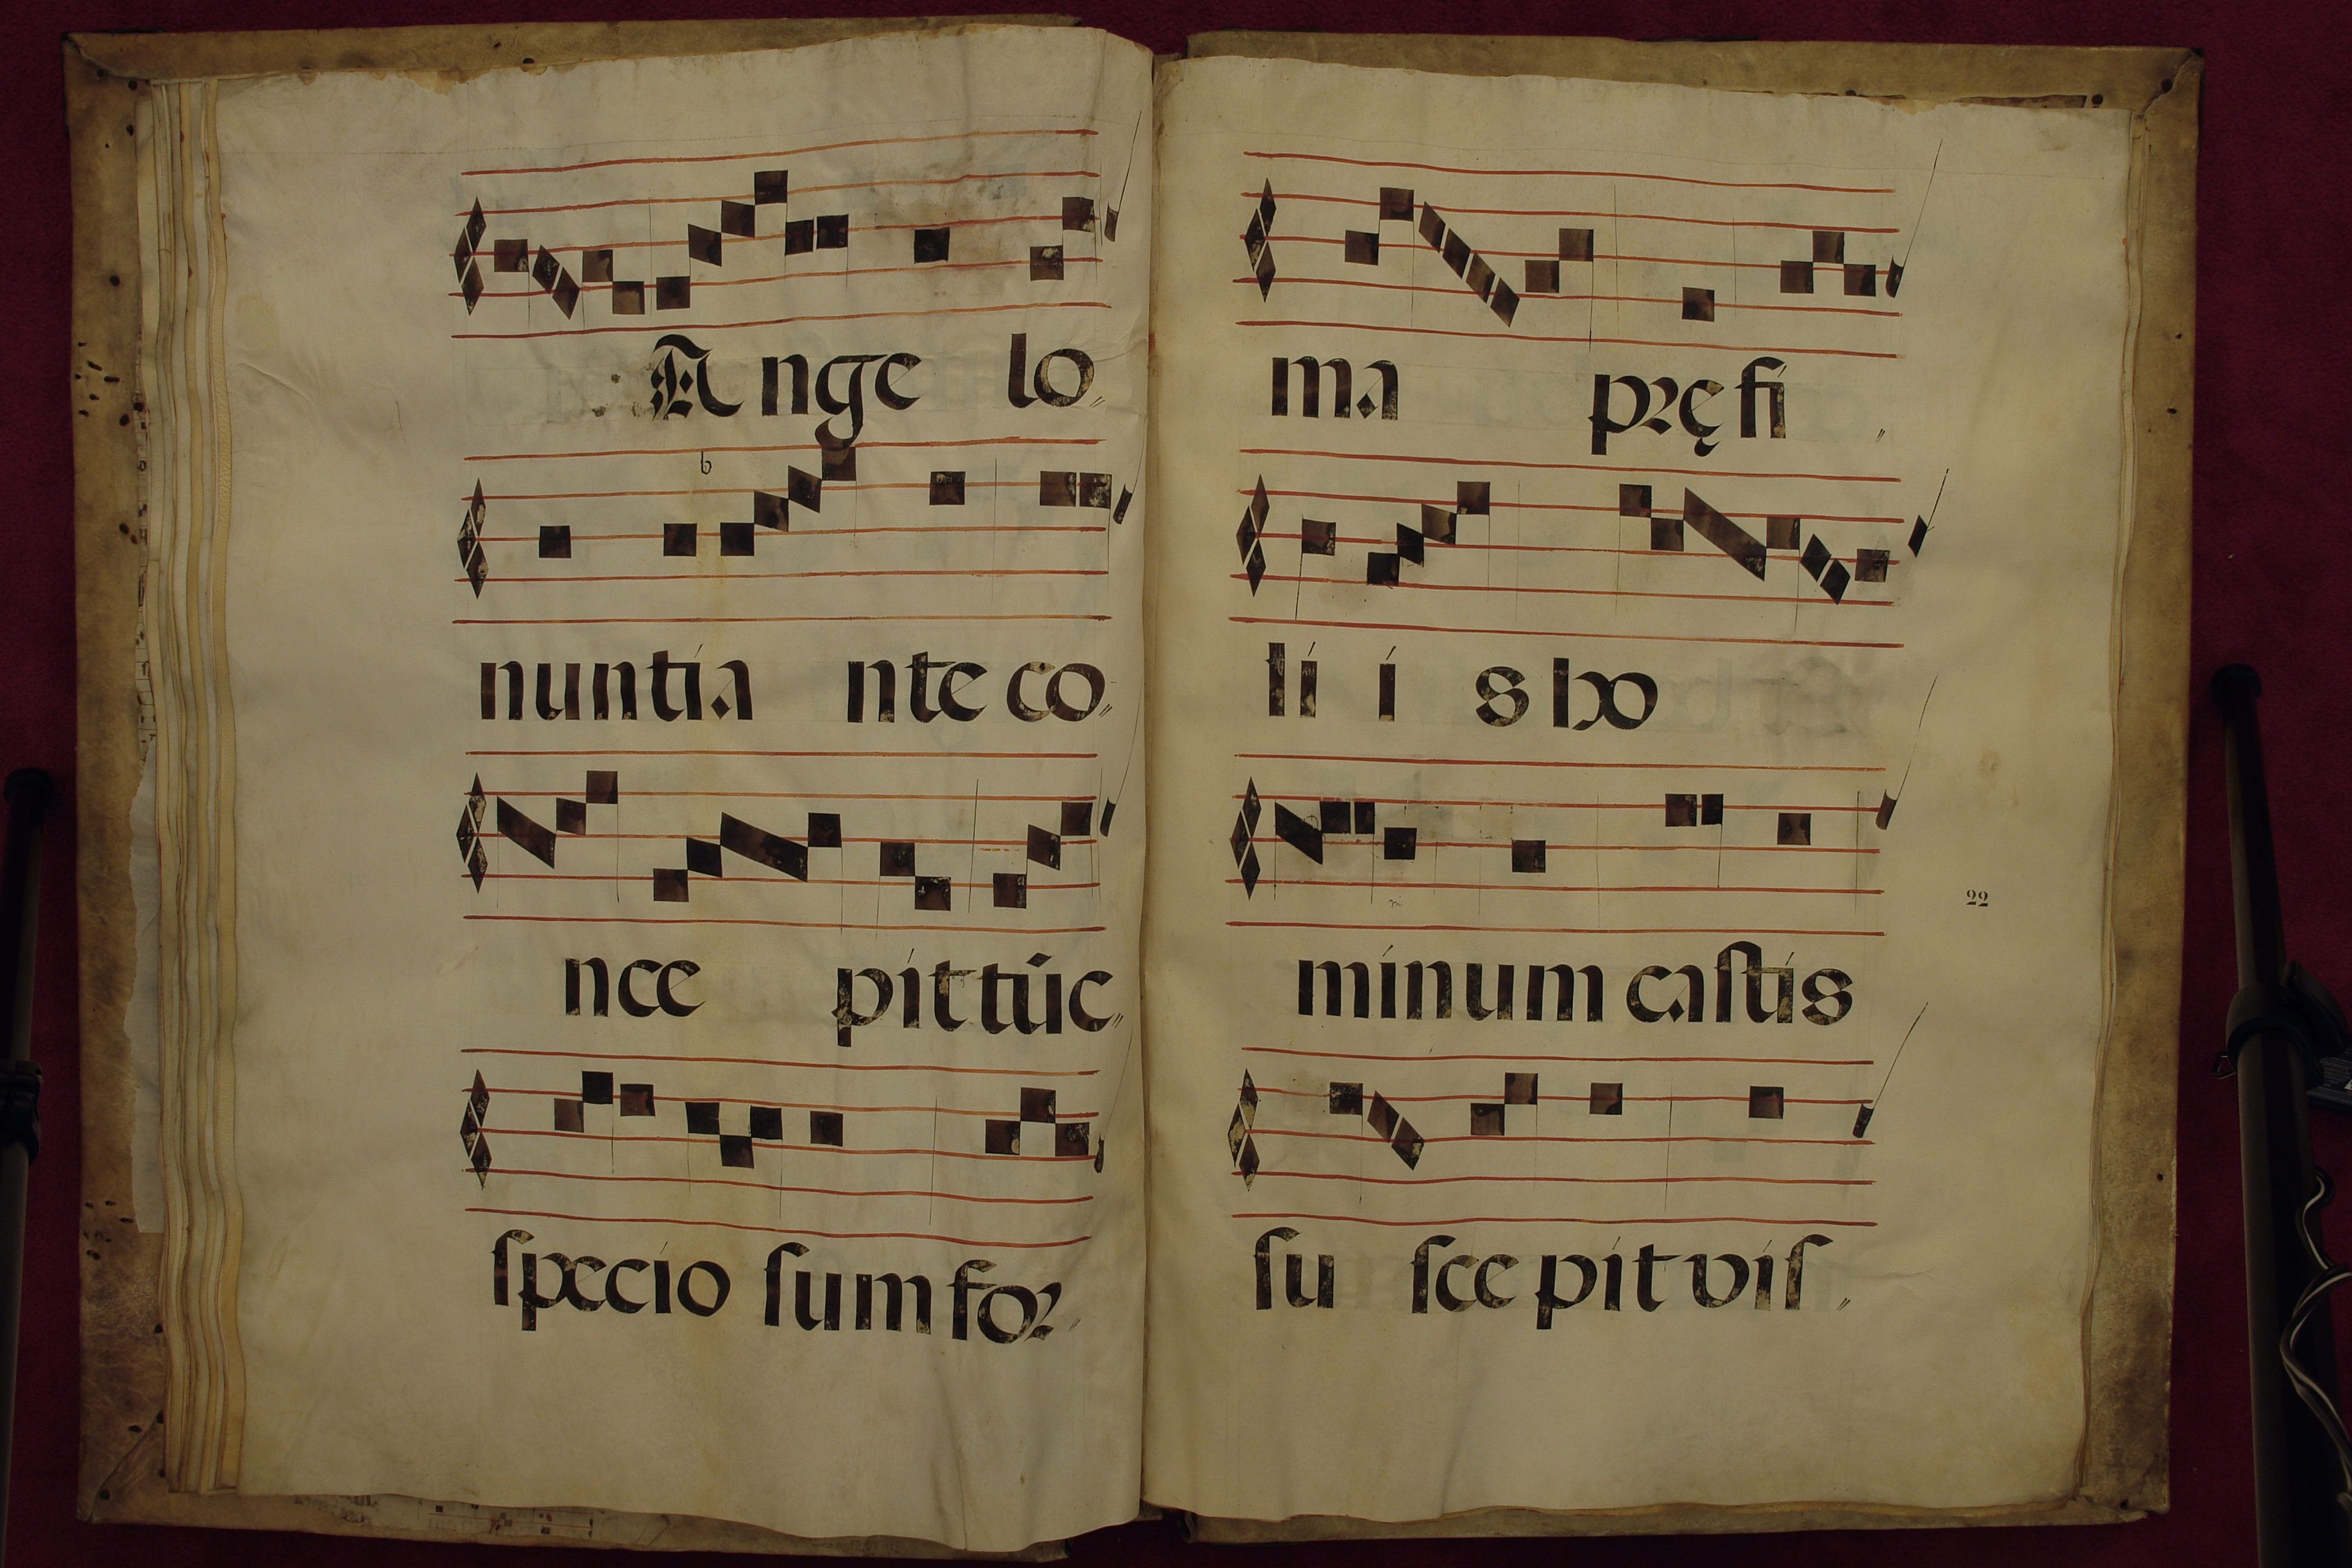 Ange lo„
b
nuntia nte co„
nce pit túc„
ſpecio ſum for„
ma pręfi „
li i s ho
minum caſtis
22
ſu ſce pit viſ„